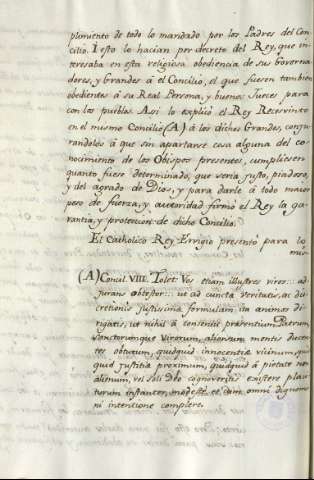 plimiento de todo lo mandado por los Padres del Con-
cilio. I esto lo hacian por decreto del Rey, que in-
teresaba en esta religiosa obediencia de sus Governa-
dores, y Grandes á el Concilio, el que fuesen tambien
obedientes á su Real Persona, y buenos Jueces para
con los pueblos. Asi lo explicó el Rey Recesvinto
en el mismo Concilio (A) á los dichos Grandes, conju-
randolos á que sin apartarse cosa alguna del co-
nocimiento de los Obispos presentes, cumpliesen
quanto fuese determinado, que seria justo, piadoso,
y del agrado de Dios, y para darle á todo mayor
peso de fuerza, y autoridad formó el Rey la ga-
rantia, y proteccion de dicho Concilio.
El Catholico Rey Ervigio presentó para lo
mis-
(A) Concil. VIII. Tolet. Vos etiam illustres viros ... ad-
jurans obtestor ... ut ad cuncta veritatis, ac dis-
cretionis justissimæ formulam ita animos di-
rigatis, ut nihil á consensu præsentium Patrum,
Sanctorumque Virorum, aliorsum mentis ducen-
tes obtutum, quidquid innocentiæ vicinum, quid-
quid justitiæ proximum, quidquid á pietate non
alienum, vel soli Deo cognoveritis existere placi-
turum instanter, modeste et cum omni dignemi-
ni intentione complere.